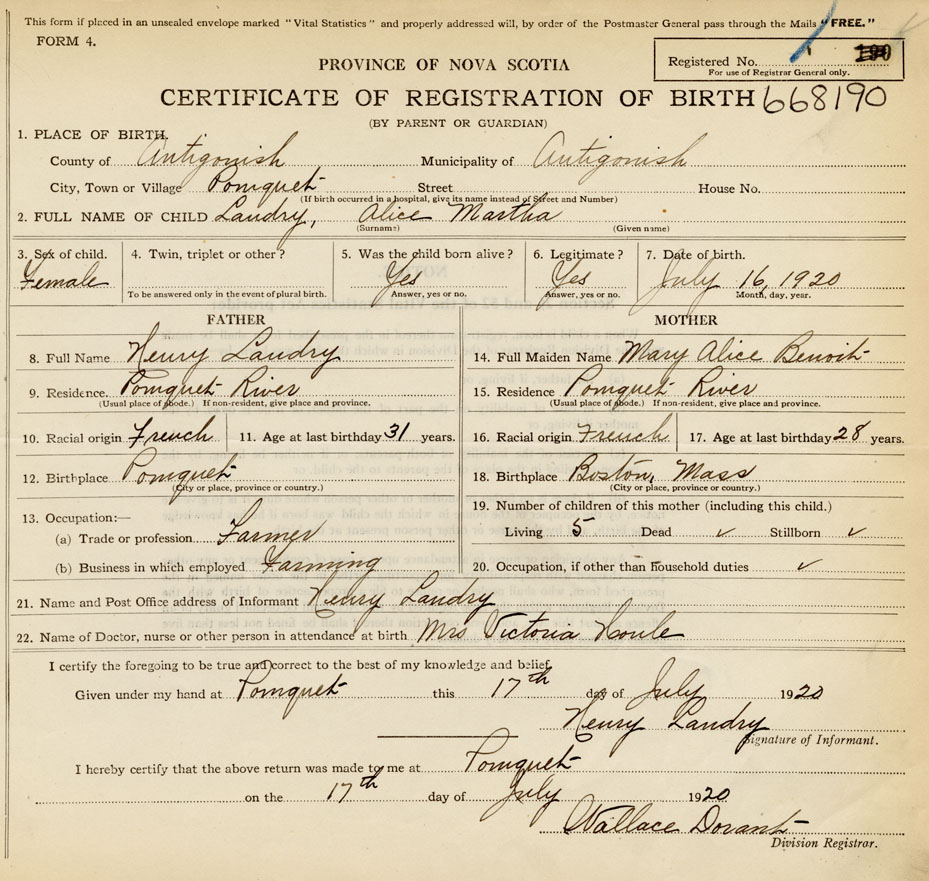 This form if placed in an unsealed envelope marked "Vital Statistics" and properly addressed will, by order of the Postmaster General pass through the Mails "FREE."
FORM 4.
Registered No.
For use of Registrar General only.
PROVINCE OF NOVA SCOTIA
CERTIFICATE OF REGISTRATION OF BIRTH 668190
(BY PARENT OR GUARDIAN)
1. PLACE OF BIRTH.
County of Antigonish Municipality of Antigonish
City, Town or Village Pomquet Street House No.
(If birth occurred in a hospital, give its name instead of Street and Number)
2. FULL NAME OF CHILD Landry, Alice Martha
(Surname) (Given name)
3. Sex of child. 4. Twin, triplet or other? 5. Was the child born alive? 6. Legitimate? 7. Date of birth.
Female Yes Yes July 16, 1920
To be answered only in the event of plural birth. Answer, yes or no. Answer, yes or no. Month, day, year.
FATHER MOTHER
8. Full Name Henry Landry 14. Full Maiden Name Mary Alice Benoit
9. Residence. Pomquet River 15. Residence Pomquet River
(Usual place of abode.) If non-resident, give place and province. (Usual place of abode.) If non-resident, give place and province.
10. Racial origin French 11. Age at last birthday 31 years. 16. Racial origin French 17. Age at last birthday 28 years.
12. Birthplace Pomquet 18. Birthplace Boston, Mass
(City or place, province or country.) (City or place, province or country.)
13. Occupation:— 19. Number of children of this mother (including this child.)
(a) Trade or profession Farmer Living 5 Dead ✓ Stillborn ✓
(b) Business in which employed Farming 20. Occupation, if other than household duties ✓
21. Name and Post Office address of Informant Henry Landry
22. Name of Doctor, nurse or other person in attendance at birth Mrs Victoria Houle
I certify the foregoing to be true and correct to the best of my knowledge and belief.
Given under my hand at Pomquet this 17th day of July 1920
Henry Landry
Signature of Informant.
I hereby certify that the above return was made to me at Pomquet
on the 17th day of July 1920
Wallace Dorant
Division Registrar.